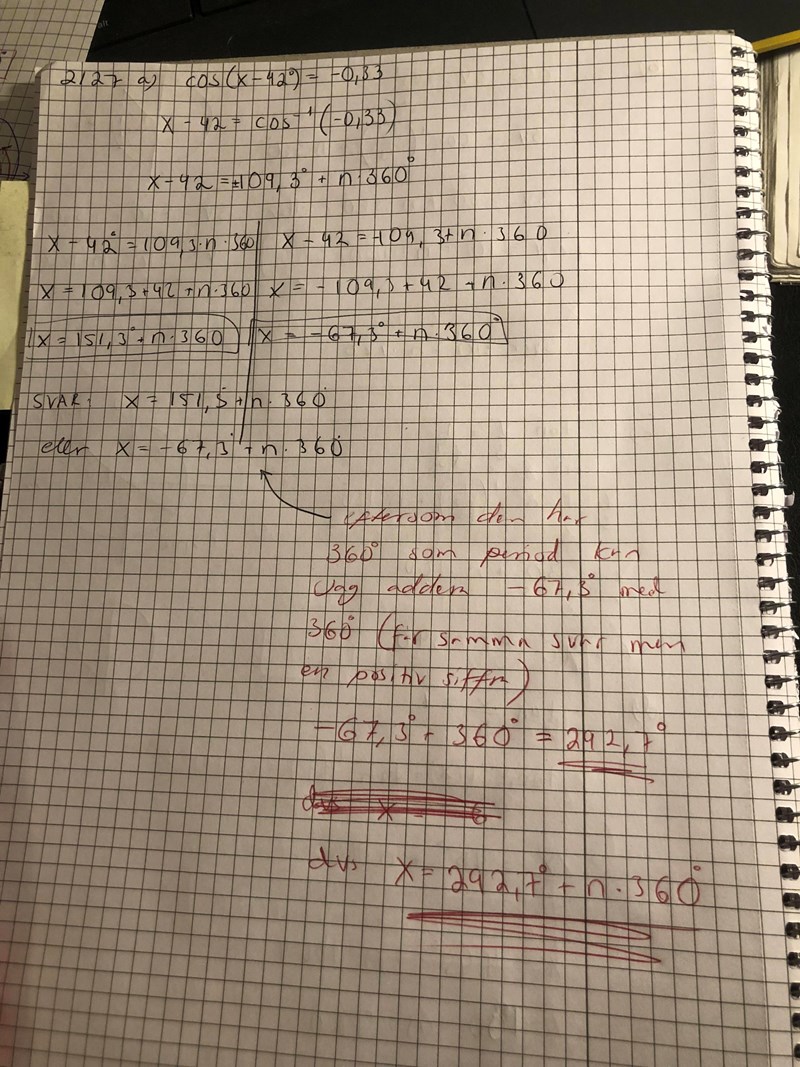 2127 a) cos(x-42°) = -0,33
x - 42 = cos⁻¹(-0,33)
x-42 = ±109,3° + n·360°
x - 42° = 109,3·n·360
x = 109,3+42 +n·360
x = 151,3°+n·360
x - 42 = -109,3+n·360
x = -109,3+42 +n·360
x = -67,3° +n·360°
SVAR: x = 151,3 +n·360°
eller x = -67,3° +n·360°
eftersom den har
360° som period kan
jag addera -67,3° med
360° (får samma svar men
en positiv siffra)
-67,3° + 360° = 292,7°
dvs x = 292,7° + n·360°